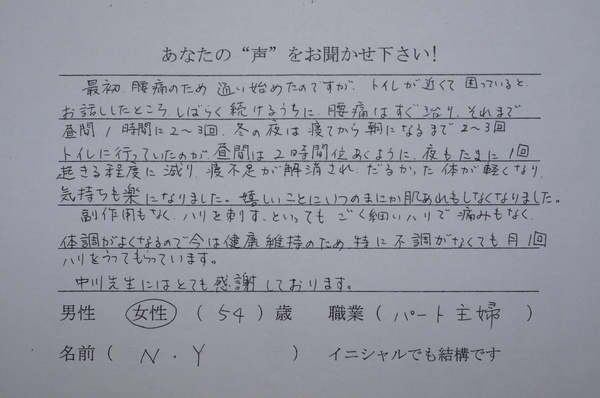 あなたの“声”をお聞かせ下さい！
最初、腰痛のため 通い始めたのですが、トイレが近くて 困っていると、
お話ししたところ、しばらく続けるうちに、腰痛はすぐ治り、それまで
昼間 1時間に2～3回、冬の夜は寝てから朝になるまで2～3回
トイレに行っていたのが、昼間は2時間位あくように、夜もたまに1回
起きる程度に減り、寝不足が解消され、だるかった体が軽くなり、
気持ちも楽になりました。嬉しいことにいつのまにか肌あれもしなくなりました。
副作用もなく、ハリを刺す、といっても ごく細いハリで痛みもなく、
体調がよくなるので今は健康維持のため、特に不調がなくても月1回
ハリをうってもらっています。
中川先生にはとても感謝しております。
男性 女性 （ 54 ）歳 職業（ パート主婦 ）
名前（ N・Y ） イニシャルでも結構です